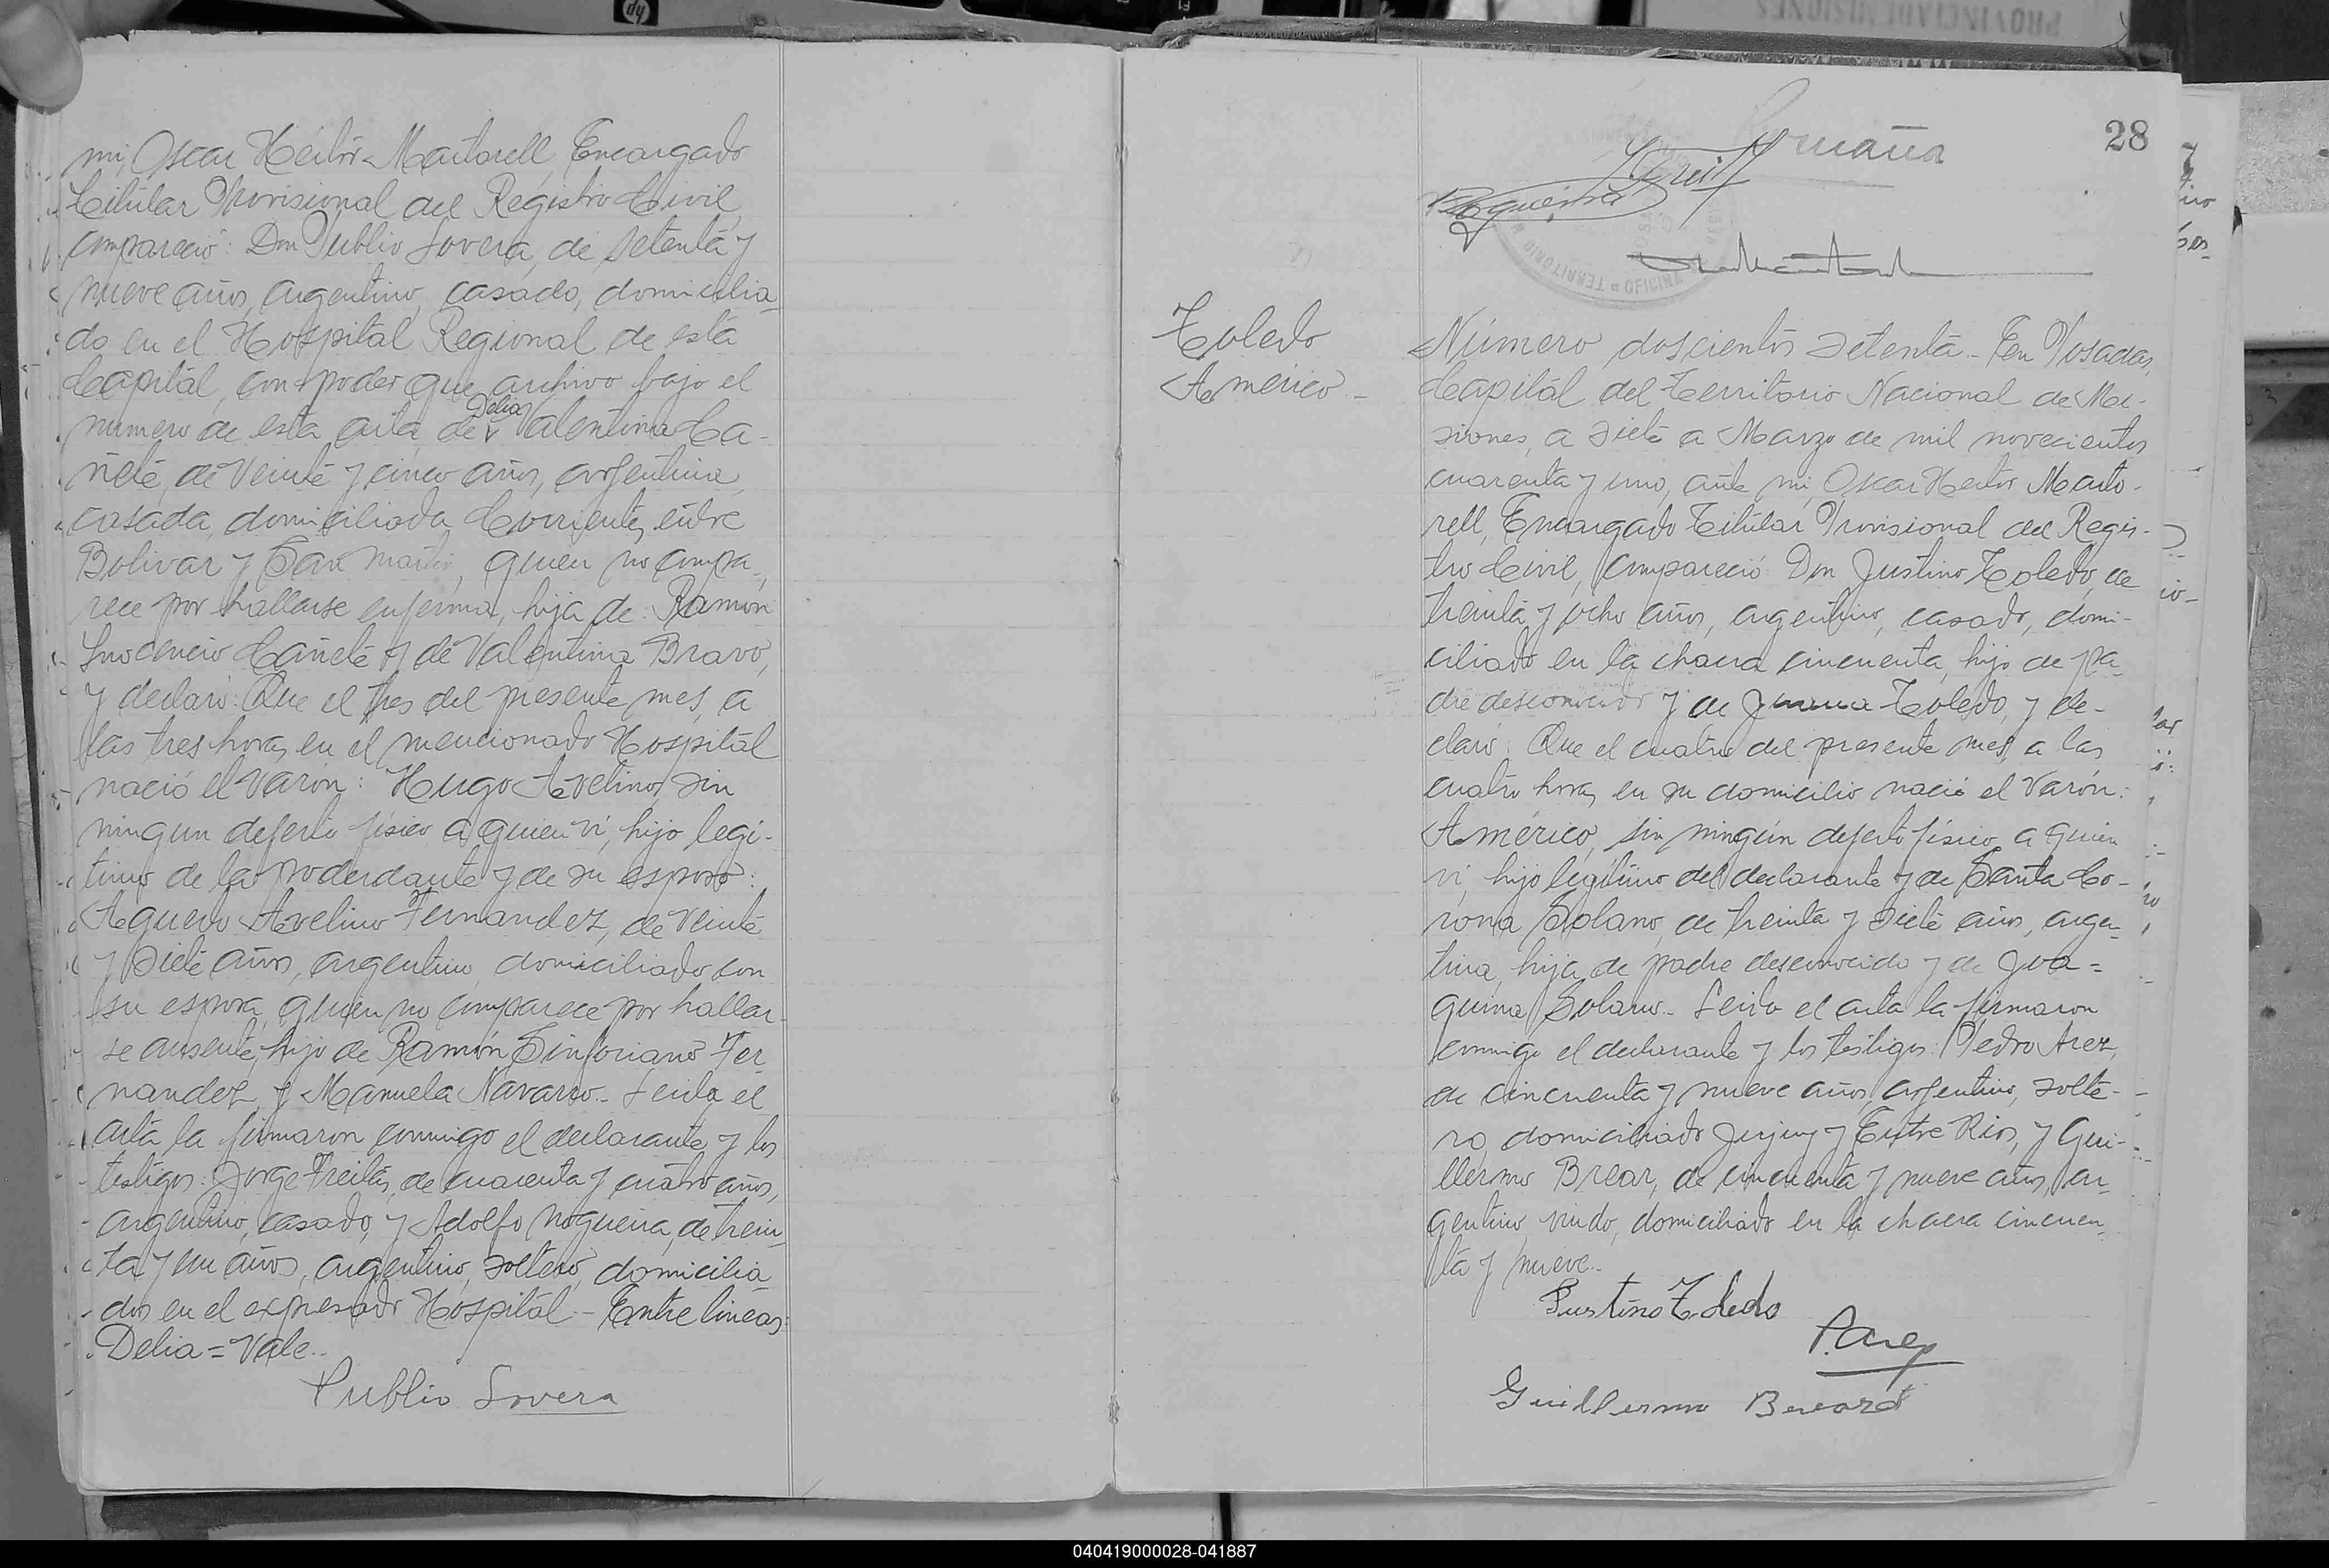 mi, Oscar Héctor Martorell, Encargado
Titular Provisional del Registro Civil,
compareció: Don Publio Lovera, de setenta y
nueve años, argentino, casado, domicilia-
do en el Hospital Regional de esta
Capital, con poder que archivo bajo el
Delia
número de esta acta, de Valentina Ca-
ñete, de veinte y cinco años, argentina,
casada, domiciliada Corrientes entre
Bolivar y San Martin, quien no compa-
rece por hallarse enferma, hija de: Ramón
Inocencio Cañete y de Valentina Bravo,
y declaró: Que el tres del presente mes, a
las tres horas, en el mencionado Hospital
nació el varón: Hugo Avelino, sin
ningun defecto físico a quien ví, hijo legí-
timo de la poderdante y de su esposo:
Agueo Avelino Fernandez, de veinte
y siete años, argentino, domiciliado con
su esposa, quien no comparece por hallar-
se ausente, hijo de Ramón Sinforiano Fer
nandez y Manuela Navarro.- Leida el
acta la firmaron conmigo el declarante y los
testigos: Jorge Freitas, de cuarenta y cuatro años,
argentino, casado, y Adolfo Nogueira, de trein-
ta y un años, argentino, soltero, domicilia
dos en el expresado Hospital.- Entre lineas:
Delia = Vale.-
Publio Lovera
28
TERRITORIO
OFICINA
Toledo
Américo -
Número doscientos setenta.- En Posadas,
Capital del Territorio Nacional de Mi-
siones, a siete a Marzo de mil novecientos
cuarenta y uno, ante mi, Oscar Hector Marto-
rell, Encargado Titular Provisional del Regis-
tro Civil, compareció Don Justino Toledo, de
treinta y ocho años, argentino, casado, domi-
ciliado en la chacra cincuenta, hijo de pa-
dre desconocido y de Toledo, y de-
claró: Que el cuatro del presente mes, a las
cuatro horas, en su domicilio nació el varón:
Américo, sin ningún defecto físico, a quien
ví, hijo legítimo del declarante y de Santa Co-
rona Solano, de treinta y siete años, argen-
tina, hija de padre desconocido y de Joa=
quina Solano.- Leida el acta la firmaron
conmigo el declarante y los testigos: Pedro Arez,
de cincuenta y nueve años, argentino, solte-
ro, domiciliado Jujuy y Entre Rios, y Gui-
llermo Brear, de cincuenta y nueve años, ar-
gentino, viudo, domiciliado en la chacra cincuen-
ta y nueve.-
Justino Toledo
P. Arez
Guillermo
040419000028-041887